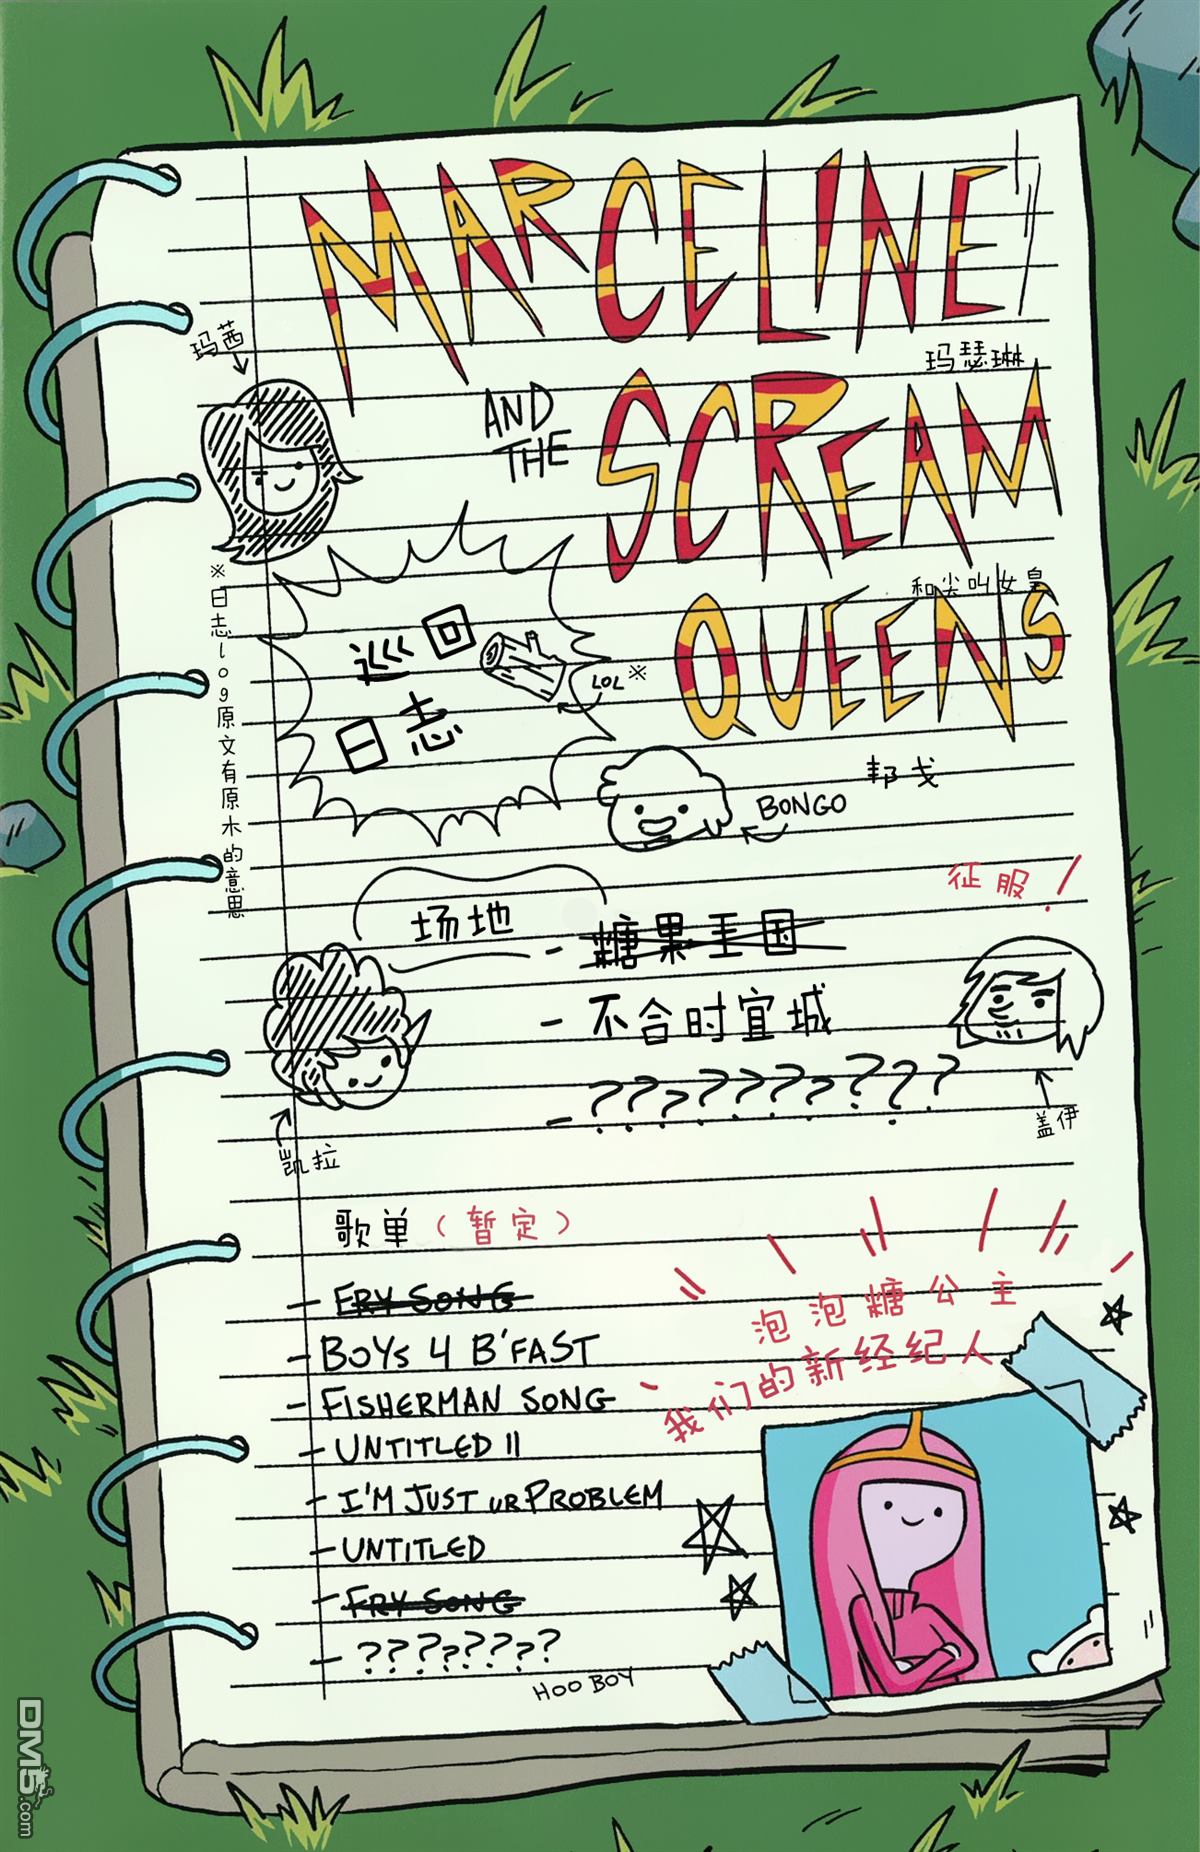 MARCELINE
玛瑟琳
玛茜
AND
THE
SCREAM
和尖叫女皇
QUEENS
※日志log原文有原木的意思
巡回
日志
LOL ※
邦戈
BONGO
征服!
场地
- 糖果王国
- 不合时宜城
- ??????????
盖伊
凯拉
歌单(暂定)
- FRY SONG
- BOYS 4 B'FAST
- FISHERMAN SONG
- UNTITLED II
- I'M JUST UR PROBLEM
- UNTITLED
- FRY SONG
- ????????
HOO BOY
泡泡糖公主
我们的新经纪人
DM5.com